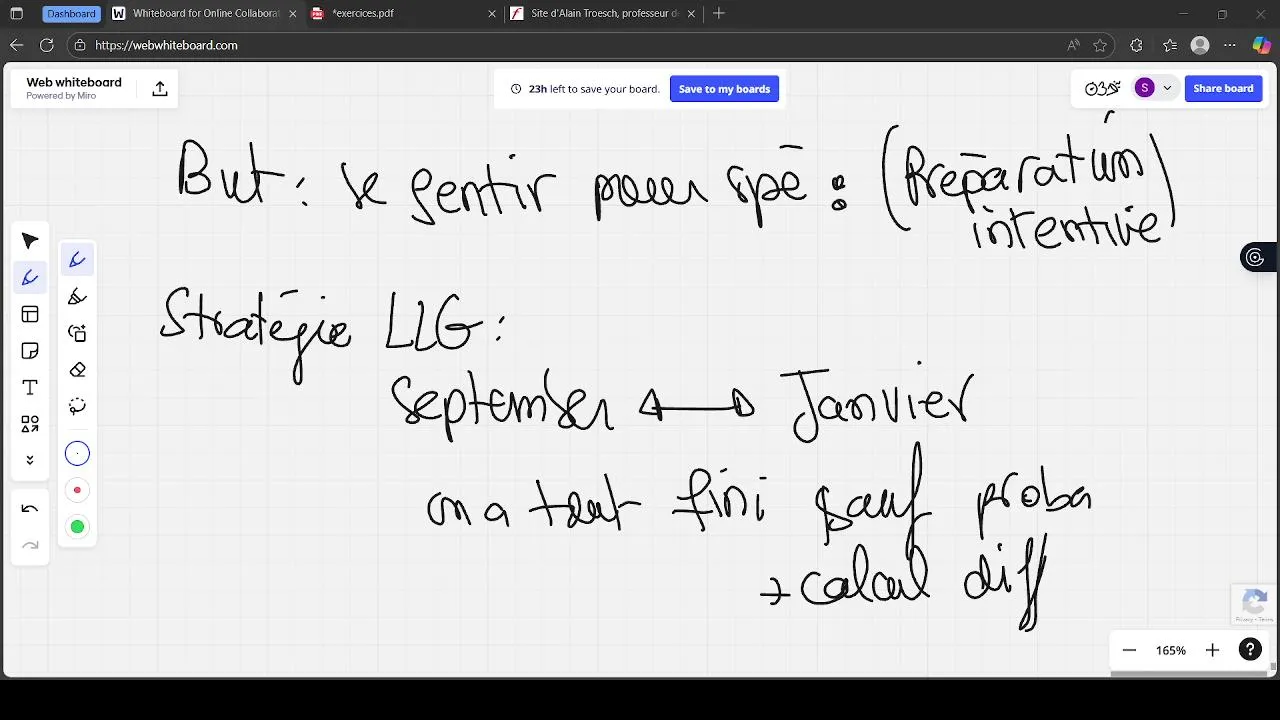 Dashboard
Whiteboard for Online Collaborat
*exercices.pdf
Site d'Alain Troesch, professeur de
https://webwhiteboard.com
Web whiteboard
Powered by Miro
23h left to save your board.
Save to my boards
S
Share board
But: se sentir pour spé : (Préparation
intentive)
Stratégie LLG:
september ↔ Janvier
on a tout fini sauf proba
+ calcul diff
Privacy - Terms
165%